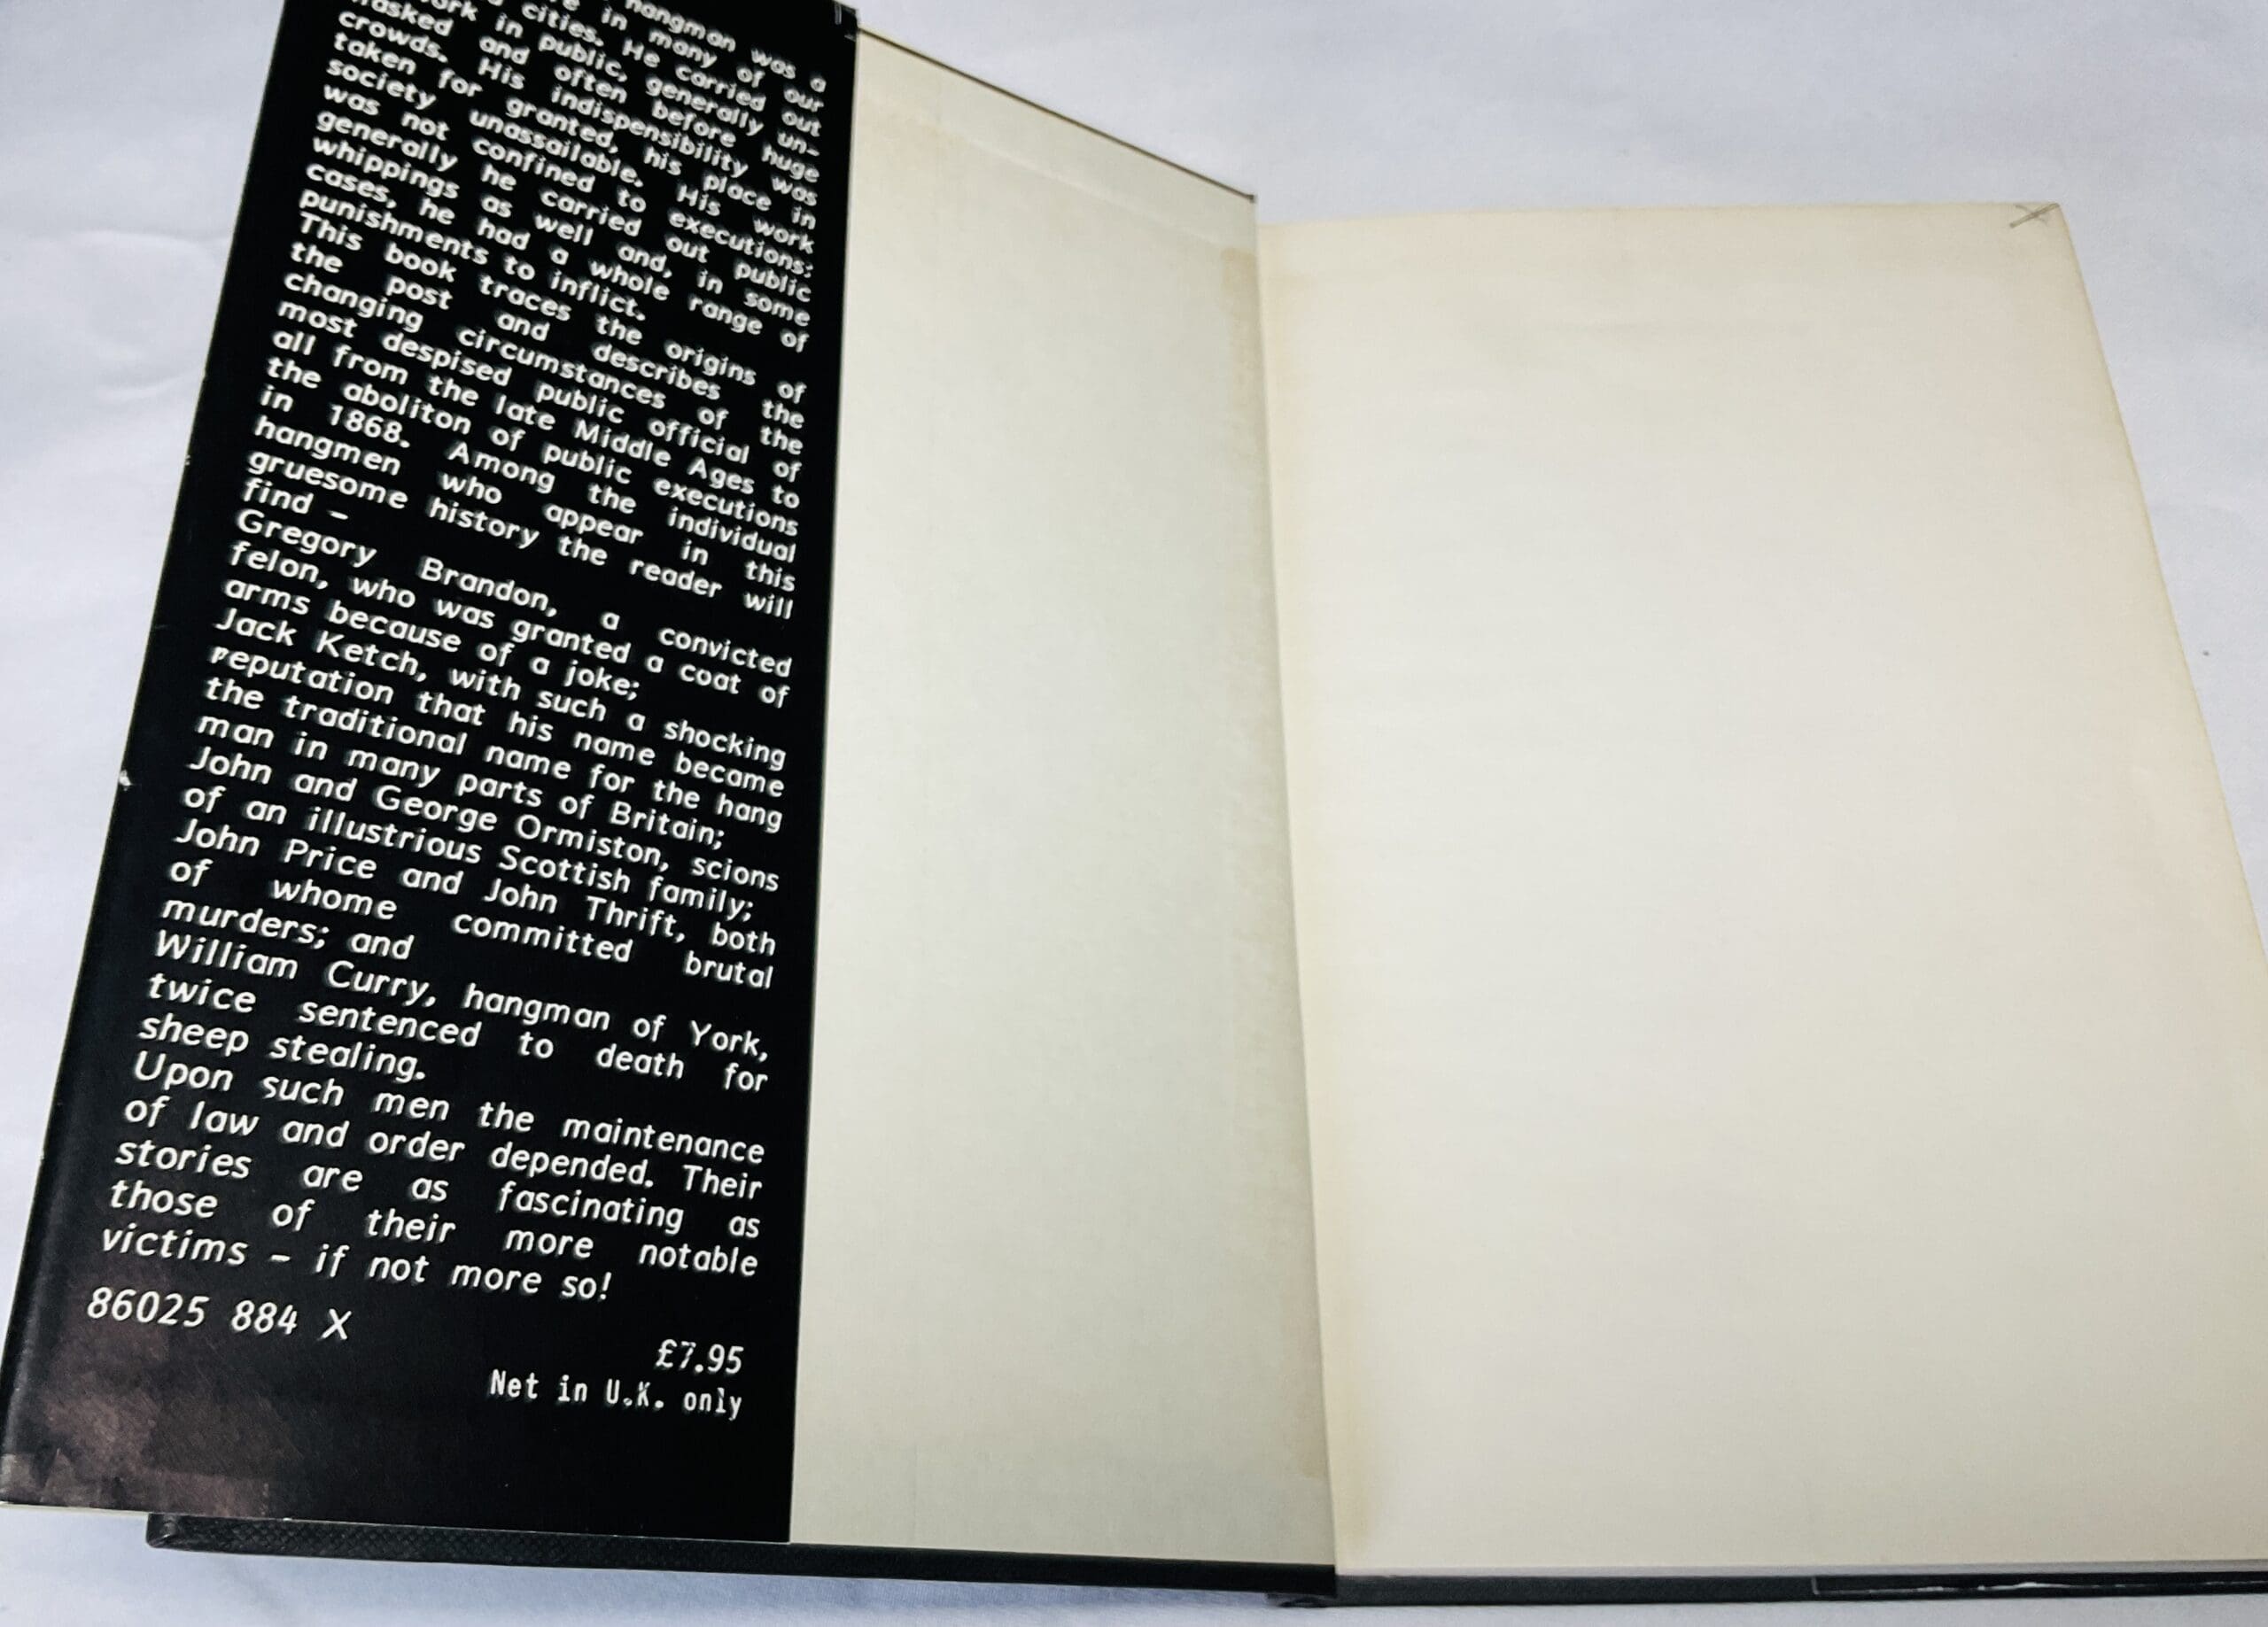 hangman was a
in many of our
cities. He carried out
in public, generally un-
and often before huge
crowds. His indispensibility was
taken for granted, his place in
society unassailable. His work
was not confined to executions:
generally he carried out public
whippings as well and, in some
cases, he had a whole range of
punishments to inflict.
This book traces the origins of
the post and describes the
changing circumstances of the
most despised public official of
all from the late Middle Ages to
the aboliton of public executions
in 1868. Among the individual
hangmen who appear in this
gruesome history the reader will
find –
Gregory Brandon, a convicted
felon, who was granted a coat of
arms because of a joke;
Jack Ketch, with such a shocking
reputation that his name became
the traditional name for the hang
man in many parts of Britain;
John and George Ormiston, scions
of an illustrious Scottish family;
John Price and John Thrift, both
of whome committed brutal
murders; and
William Curry, hangman of York,
twice sentenced to death for
sheep stealing.
Upon such men the maintenance
of law and order depended. Their
stories are as fascinating as
those of their more notable
victims – if not more so!
86025 884 X
£7.95
Net in U.K. only